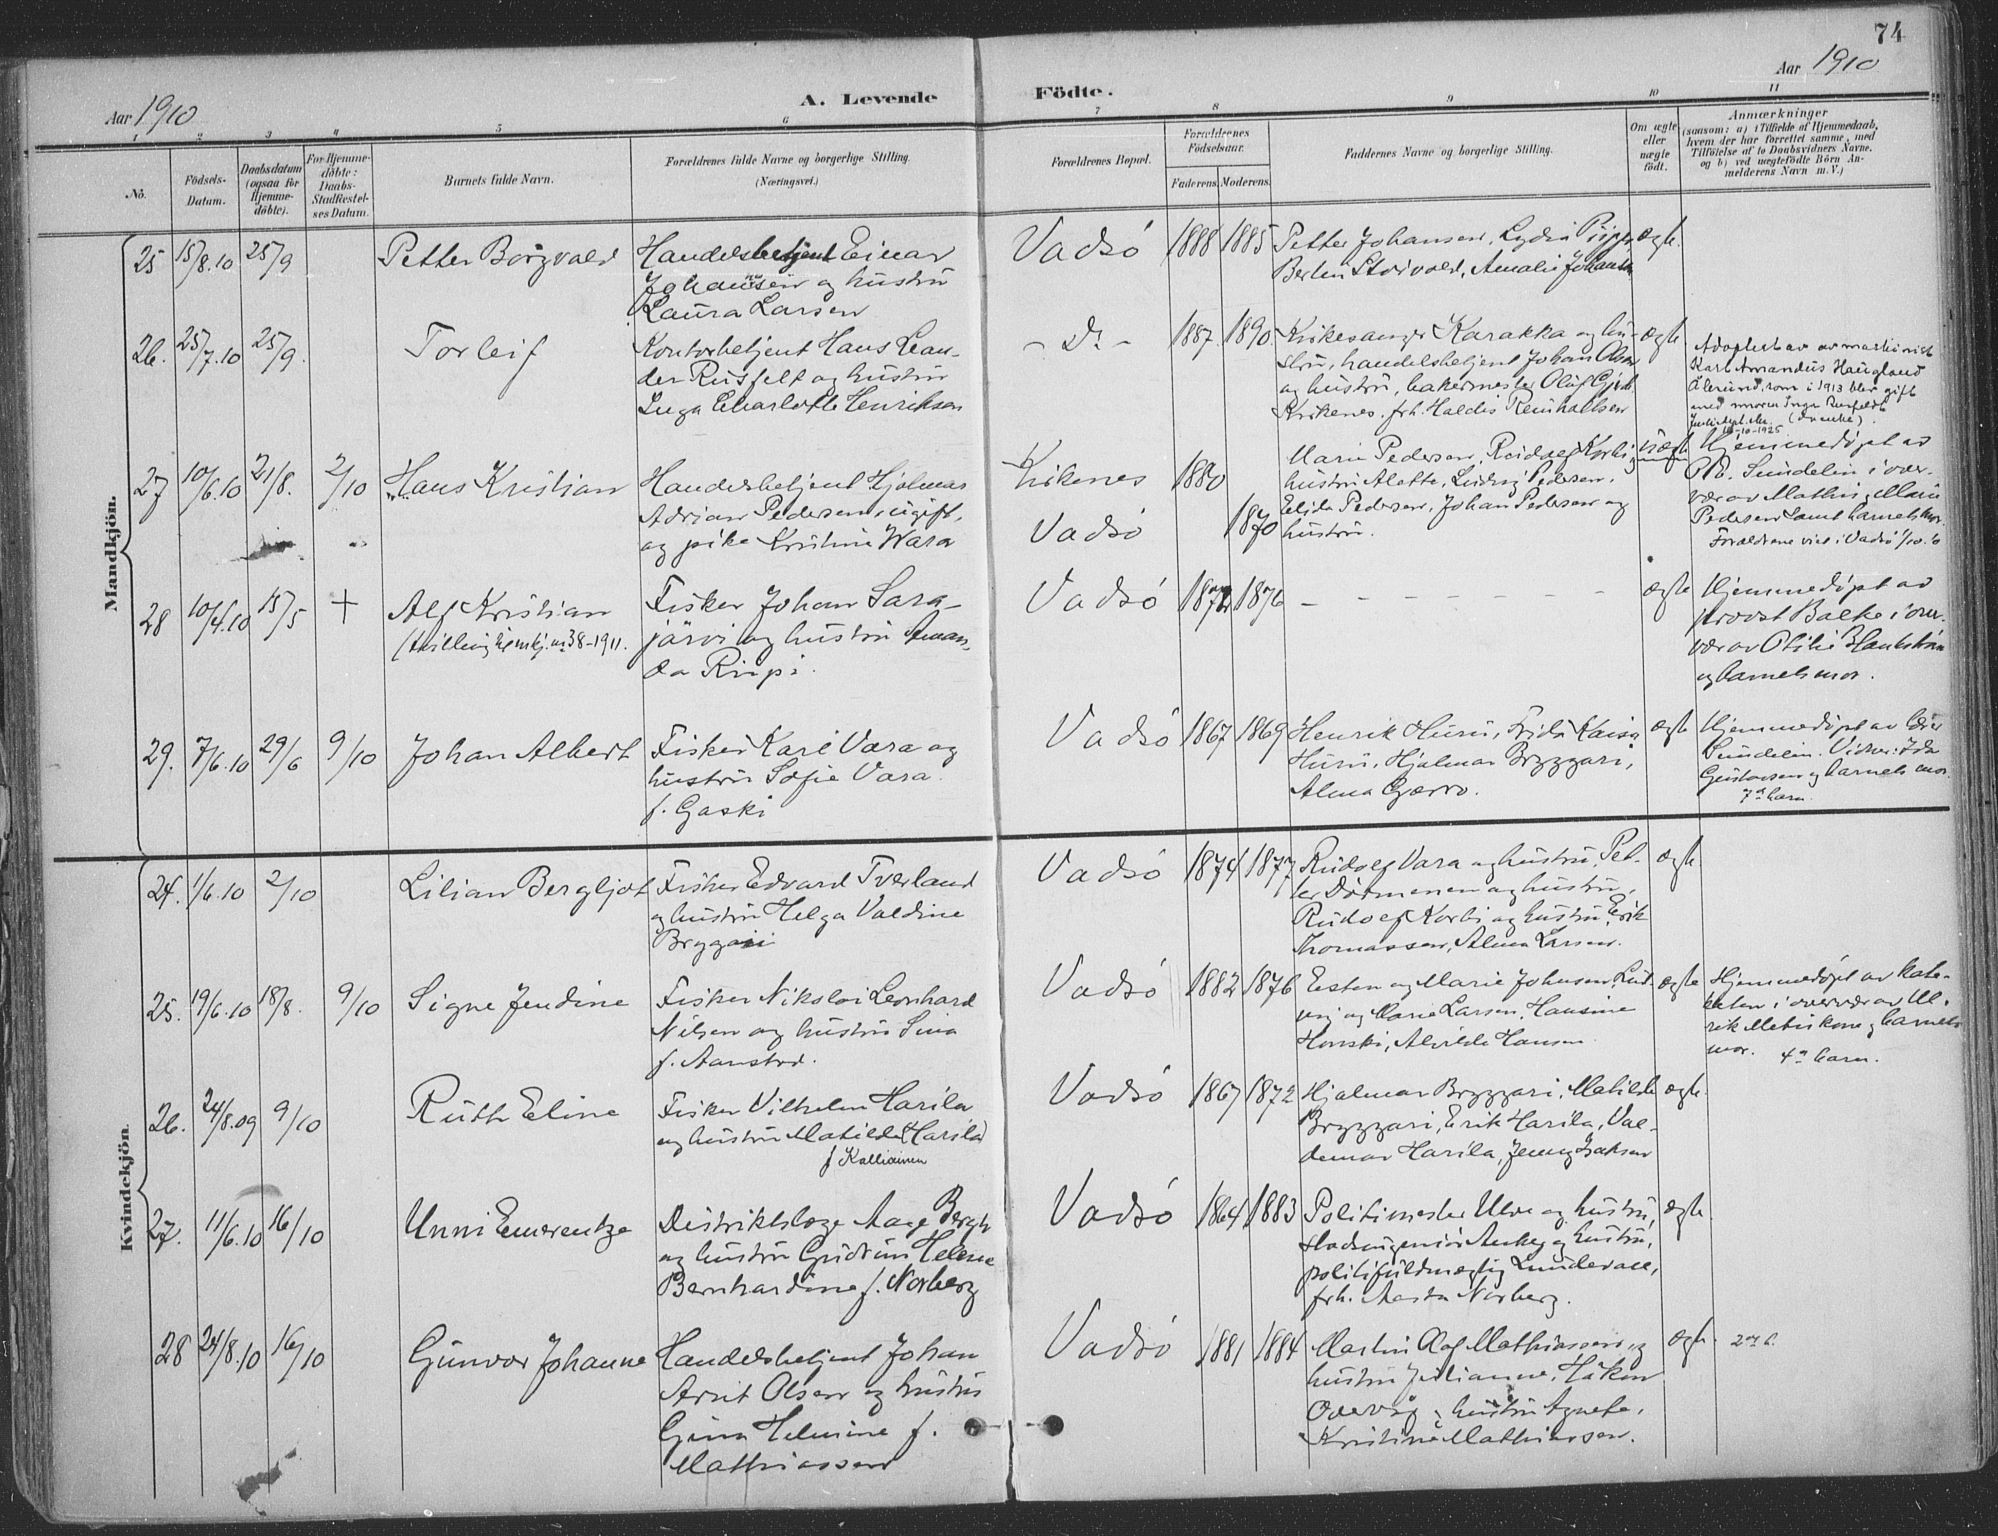 74
Aar 1910
A. Levende Födte.
Aar 1910
1 2 3 4 5 6 7 8 9 10 11
No.
Födsels-Datum.
Daabsdatum (ogsaa for Hjemme-döbte).
For Hjemme-döbte: Daabs-Stadfæstel-ses Datum.
Barnets fulde Navn.
Forældrenes fulde Navne og borgerlige Stilling.
(Næringsvei.)
Forældrenes Bopæl.
Forældrenes Födselsaar.
Faderens. Moderens.
Faddernes Navne og borgerlige Stilling.
Om ægte eller uægte födt.
Anmærkninger
(saasom: a) i Tilfælde af Hjemmedaab,
hvem der har forrettet samme, med
Tilföielse af to Daabsvidners Navne.
og b) ved uægtefödte Börn An-
melderens Navn m.V.)
Mandkjön.
25 15/8.10 25/9 Petter Borgvald
Handelsbetjent Einar
Johansen og hustru
Laura Larsen
Vadsö 1888 1885
Petter Johansen, Lydia
Storvold, Amalie Johansen
ægte.
26. 25/7.10 25/9. Torleif
Kontorbetjent Hans Lean-
der Rusfelt og hustru
Inga Charlotte Henriksen
- D. - 1887 1890.
Kirkesanger Karakka og hu-
stru, handelsbetjent Johan Olsen
og hustru, bakermester Oluf
Kirkenes, frk. Haldis
ægte
Adoptert av
Karl Amandus Haugland
Ålesund, som i 1913 blev gift
med moren Inga Rusfeldt
10-10-1925
27 10/6.10 21/8. 2/10 Hans Kristian
Handelsbetjent Hjalmar
Adrian Pedersen, ugift,
og pike Kristine Wara
Kirkenes 1880
Vadsö 1870
Marie Pedersen, Rudolf Korbi og
hustru Alette, Ludvig Pedersen,
Elida Pedersen, Johan Pedersen og
hustru.
uægte
Hjemmedöpt av
Sundelin i over-
vær av Mathis, Marie
Pedersen samt barnets mor.
Forældrene viet i Vadsö 1/10.10
28 10/4.10 15/5 + Alf Kristian
(tvilling hjemkj. nr 38-1911.
Fisker Johan Sara-
järvi og hustru Aman-
da Riipi.
Vadsö 1872 1876 - - - - - - -
ægte
Hjemmedöpt av
provst Balke i over-
vær av Otilie
og barnets mor.
29. 7/6.10 29/6 9/10 Johan Albert
Fisker Karl Vara og
hustru Sofie Vara
f. Gaski
Vadsö 1867 1869
Henrik Huru, Frida Kaisa
Huru, Hjalmar Bryggari,
Alma Gjærvo.
ægte
Hjemmedöpt av lærer
Sundelin. Vidner: Ida
Gustavsen og barnets mor.
7de barn.
Kvindekjön.
24. 1/6.10 2/10 Lilian Bergljot
Fisker Edvard Tverland
og hustru Helga Valdine
Bryggari
Vadsö 1874 1877
Rudolf Vara og hustru, Pet-
ter Dörmenen og hustru,
Rudolf Korbi og hustru, Erik
Thomassen, Alma Larsen.
ægte
25. 19/6.10 18/8. 9/10 Signe Jendine
Fisker Nikolai Leonhard
Nilsen og hustru Lina
f. Aanstad.
Vadsö 1882 1876
Esten og Marie Johnsen, Lud-
vig og Marie Larsen, Hansine
Honski, Alvilde Hansen
ægte
Hjemmedöpt av kate-
keten i overvær av Ul-
rik Metis kone og barnets
mor. 4de barn.
26. 24/8.09 9/10 Ruth Eline
Fisker Vilhelm Harila
og hustru Matilde Harila
f. Kallioinen
Vadsö 1867 1872
Hjalmar Bryggari, Matilde
Bryggari, Erik Harila, Val-
demar Harila, Jenny Isaksen
ægte.
27. 11/6.10 16/10 Unni Emerentze
Distriktslæge Aage Bergh
og hustru Gudrun Helene
Bernhardine f. Norberg
Vadsö 1864 1883
Politimester Ulve og hustru,
stadsingeniör Anker og hustru,
politifuldmægtig Lundevall,
frk. Aasta Norberg.
ægte.
28 24/8.10 16/10 Gunvor Johanne
Handelsbetjent Johan
Arnt Olsen og hustru
Gina Helmine f.
Mathiassen
Vadsö 1881 1884
Martin Olaf Mathiassen og
hustru Julianne, Håkon
og hustru Agnete,
Kristine Mathiassen.
ægte. 2det b.